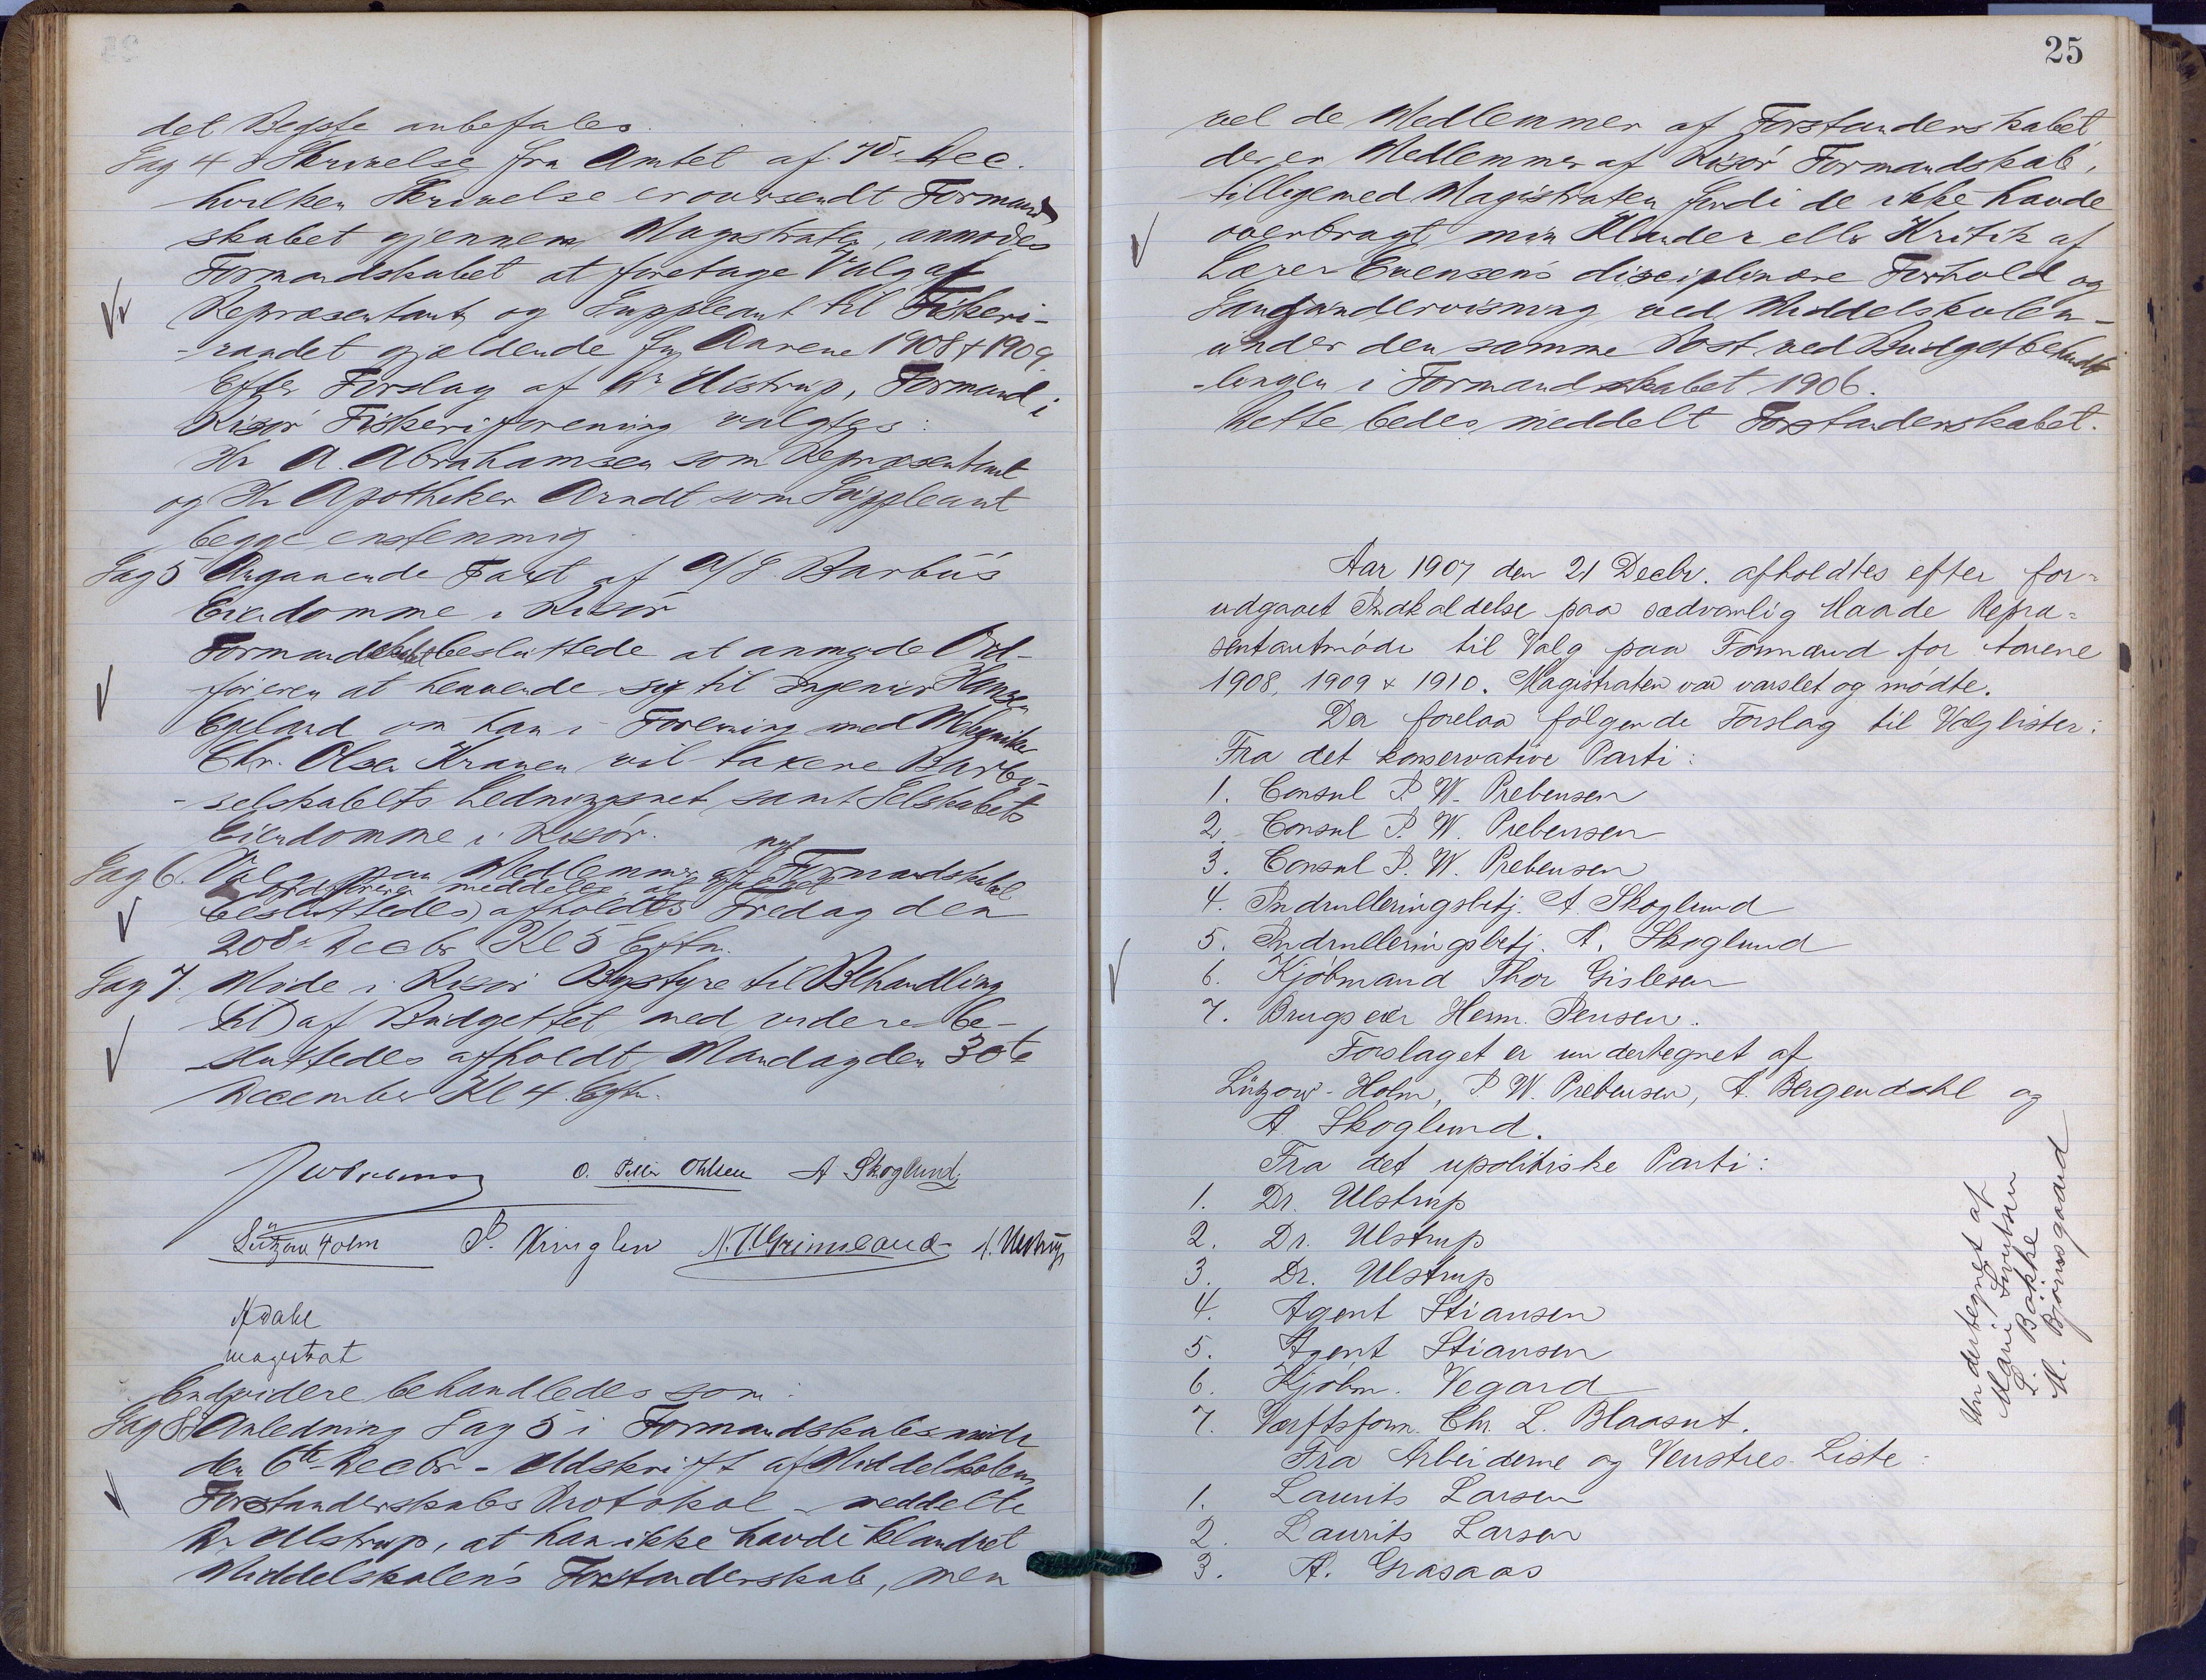 det Bedste anbefales.
Sag 4. I Skrivelse fra Amtet af 7de Dec.
hvilken Skrivelse er oversendt Formand
skabet gjennem Magistraten, anmodes
Formandskabet at foretage Valg af
Repræsentant og Suppleant til Fiskeri-
-raadet gjældende for Aarene 1908 & 1909.
Efter Forslag af Dr Ulstrup, Formand i
Risör Fiskeriforening valgtes:
Hr A. Abrahamsen som Repræsentant
og Hr Apotheker Arndt som Suppleant
begge enstemmig
Sag 5 Angaaende Taxt af A/S Barbüs
Eiendomme i Risör
Formandskabet besluttede at anmode Ord-
föreren at henvende sig til Ingeniör Hansen
Egeland om han i Forening med Mekaniker
Chr. Olsen Kranen vil taxere Barbu-
-selskabets Ledningsnet samt Selskabets
Eiendomme i Risör.
Sag 6. Valg paa Medlemmer af nyt Formandskab
Ordföreren meddeles at
besluttedes afholdes Fredag den
20de Decbr Kl 5 Eftm.
Sag 7. Möde i Risör Bystyre til Behandling
af Budgettet med videre be-
sluttedes afholdt Mandag den 30te
December Kl 4. Eftm.
O. Peder Ohlsen A Skoglund
Lützow Holm P. Kringlen N. T. Grimeland A. Ulstrup
A Dahl
magistrat
Endvidere behandledes som:
Sag 8. I Anledning Sag 5 i Formandskabsmöde
den 6te Decbr - Udskrift af Middelskolens
Forstanderskabs Protokol - meddelte
Dr Ulstrup, at han ikke havde klandret
Middelskolens Forstanderskab, men
25
vel de Medlemmer af Forstanderskabet
der er Medlemmer af Risör Formandskab,
tilligemed Magistraten fordi de ikke havde
overbragt min Klander eller Kritik af
Lærer Evensens disciplinære Forhold og
Sangundervisning ved Middelskolen -
under den samme Post ved Budgetbehand
-lingen i Formandskabet 1906.
Dette bedes meddelt Forstanderskabet.
Aar 1907 den 21 Decbr. afholdtes efter for-
udgaaet Indkaldelse paa sædvanlig Maade Repræ-
sentantmöde til Valg paa Formænd for Aarene
1908, 1909 & 1910. Magistraten var varslet og mödte.
Der forelaa fölgende Forslag til Valglister:
Fra det konservative Parti:
1. Consul P. W. Prebensen
2. Consul P. W. Prebensen
3. Consul P. W. Prebensen
4. Indrulleringsbetj. A. Skoglund
5. Indrulleringsbetj. A. Skoglund
6. Kjöbmand Thor Gislesen
7. Brugseier Herm. Jensen.
Forslaget er undertegnet af
Lützow-Holm, P. W. Prebensen, A. Bergendahl og
A Skoglund.
Fra det upolitiske Parti:
1. Dr. Ulstrup
2. Dr. Ulstrup
3. Dr. Ulstrup
4. Agent Stiansen
5. Agent Stiansen
6. Kjöbm. Vegard
7. Værftsform. Chr. L. Blaasut.
Undertegnet af
L. Bakke
M. Bjönsgaard
Fra Arbeiderne og Venstres Liste:
1. Laurits Larsen
2. Laurits Larsen
3. A. Grasaas